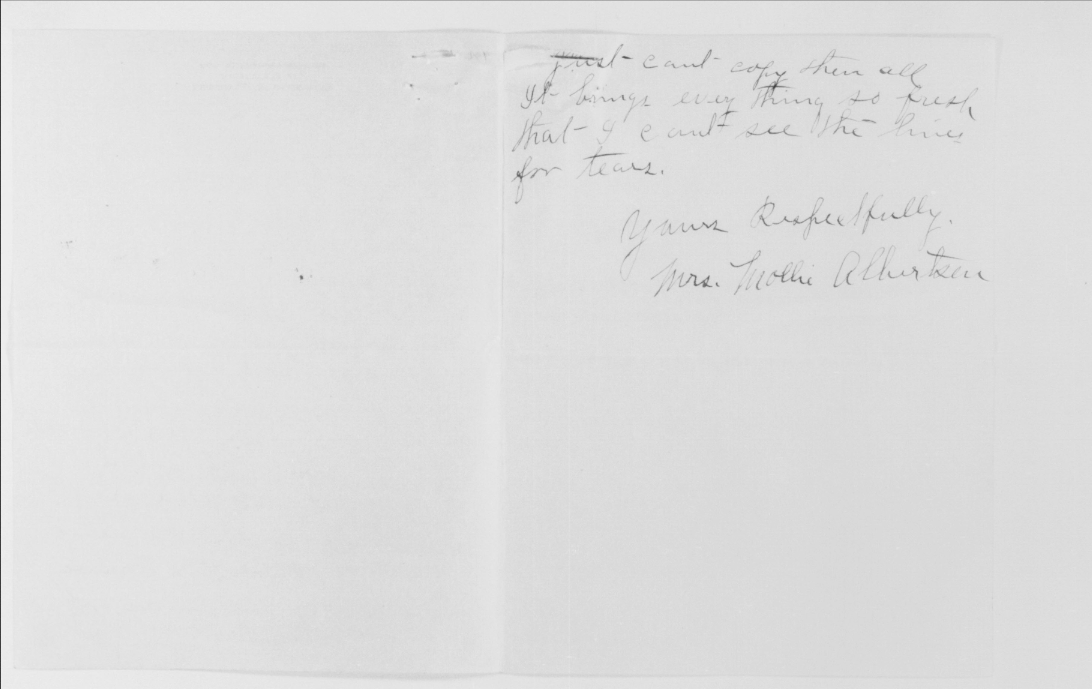 just cant copy then all
It brings evey thing so fresh
that I cant see the lines
for tears.
Yours Respectfully.
Mrs. Mollie Albertsen